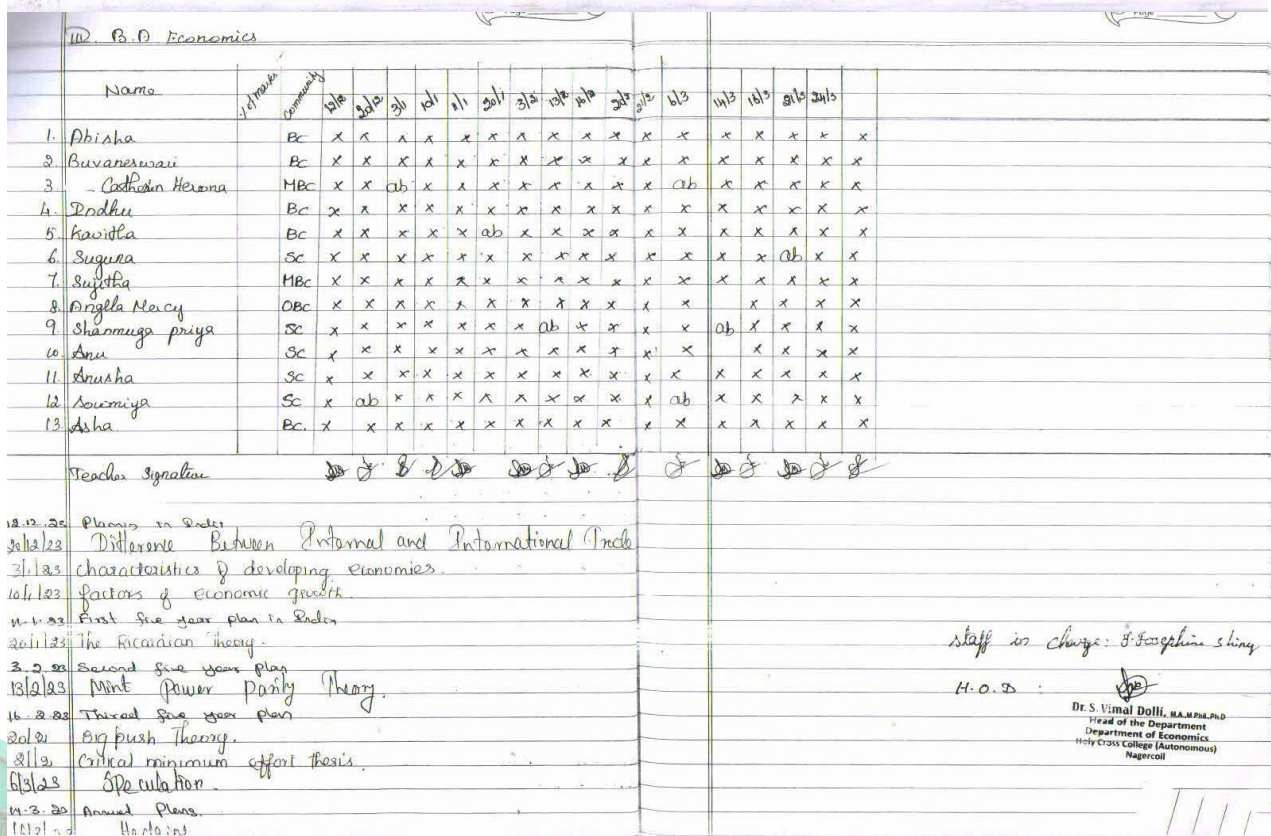 III. B.A Economics
Name % of marks Community 12/12 20/12 3/1 10/1 11/1 20/1 3/2 13/2 16/2 20/2 21/2 6/3 14/3 16/3 21/3 24/3
1. Abisha BC x x x x x x x x x x x x x x x x x
2. Buvaneswari BC x x x x x x x x x x x x x x x x x
3. - Catherin Herona MBC x x ab x x x x x x x x ab x x x x x
4. Indhu BC x x x x x x x x x x x x x x x x x
5. Kavitha BC x x x x x ab x x x x x x x x x x x
6. Suguna SC x x x x x x x x x x x x x x ab x x
7. Sujitha MBC x x x x x x x x x x x x x x x x x
8. Anglla Mercy OBC x x x x x x x x x x x x x x x x
9. Shanmuga priya SC x x x x x x x ab x x x x ab x x x x
10. Anu SC x x x x x x x x x x x x x x x x
11. Anusha SC x x x x x x x x x x x x x x x x x
12. Sowmiya SC x ab x x x x x x x x x ab x x x x x
13. Asha BC. x x x x x x x x x x x x x x x x x
Teacher Signature
12.12.22 Planning in India
20/12/23 Difference Between Internal and International Trade
3/1/23 Characteristics of developing economies.
10/1/23 factors of economic growth.
11.1.23 First five year plan in India
20/1/23 The Ricardian Theory.
3.2.23 Second five year plan
13/2/23 Mint Power Parity Theory.
16.2.23 Thired five year plan
20/2 Big push Theory.
21/2 Critical minimum effort thesis.
6/3/23 Speculation.
14.3.23 Annual Plans.
staff in charge: J. Josephine Shiny
H.O.D :
Dr. S. Vimal Dolli, M.A.,M.Phil.,Ph.D
Head of the Department
Department of Economics
Holy Cross College (Autonomous)
Nagercoil